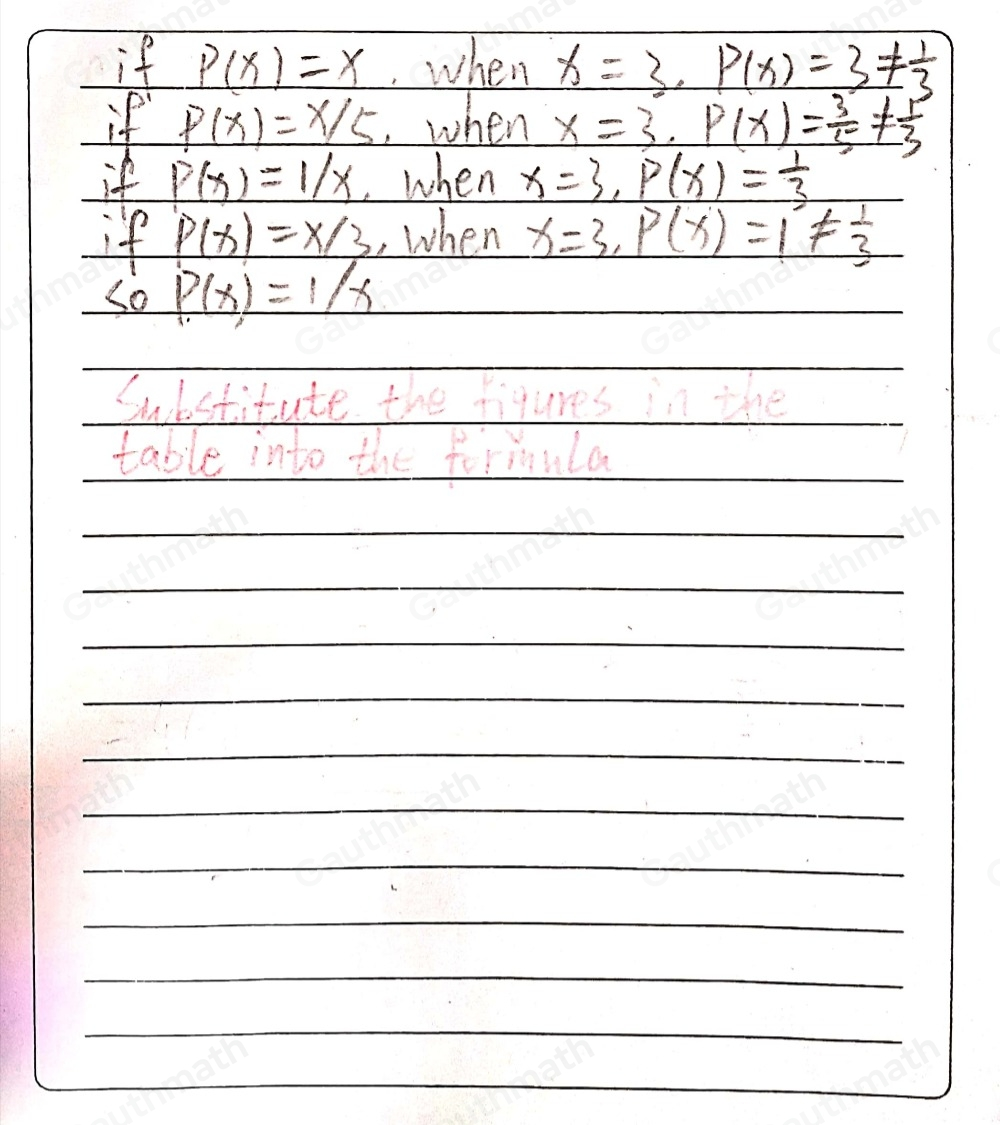 if P(x) = x, when x = 3, P(x) = 3 ≠ 1/3
if P(x) = x/5, when x = 3, P(x) = 3/5 ≠ 1/3
if P(x) = 1/x, when x = 3, P(x) = 1/3
if P(x) = x/3, when x = 3, P(x) = 1 ≠ 1/3
so P(x) = 1/x
Substitute the figures in the
table into the formula
Gauthmath